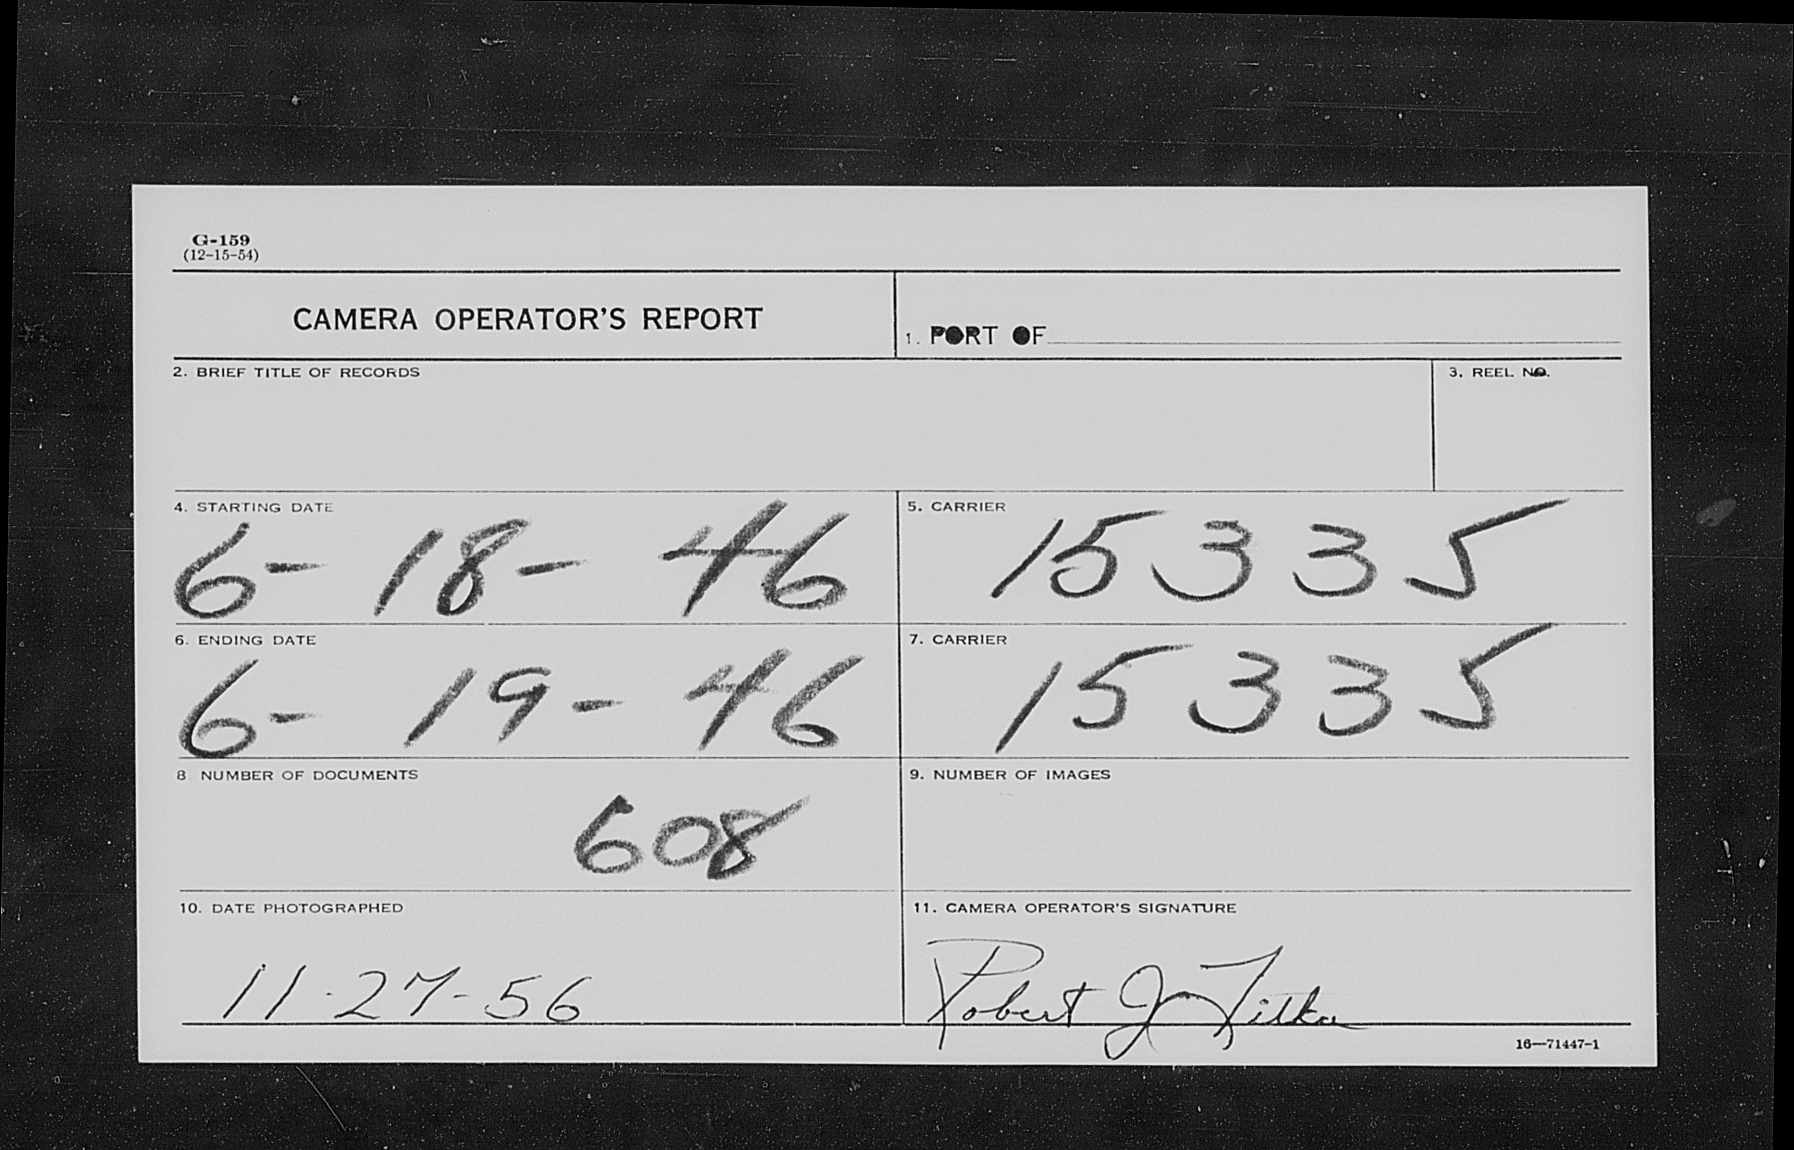 G-159
(12-15-54)
CAMERA OPERATOR'S REPORT
1. PORT OF
2. BRIEF TITLE OF RECORDS
3. REEL NO.
4. STARTING DATE
6- 18- 46
5. CARRIER
15335
6. ENDING DATE
6- 19- 46
7. CARRIER
15335
8 NUMBER OF DOCUMENTS
608
9. NUMBER OF IMAGES
10. DATE PHOTOGRAPHED
11-27-56
11. CAMERA OPERATOR'S SIGNATURE
Robert J
16—71447-1